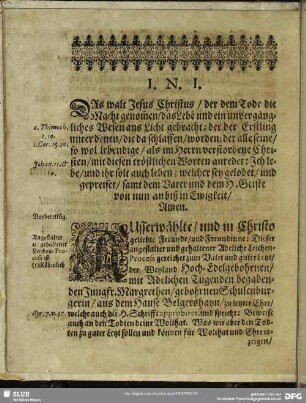 I. N. I.
DAs walt Jesus Christus / der dem Tode die
Macht genomen / das Lebē und ein unvergäng-
2. Thimoth.
1. 10.
liches Wesen ans Licht gebracht; der der Erstling
1. Cor. 15. 20.
unter denen / die da schlaffen / worden; der alle seine /
so wol lebendige / als im Herrn verstorbene Chri-
sten / mit diesen tröstlichen Worten anredet: Ich le-
be / und ihr solt auch leben; welcher sey gelobet / und
gepreiset / samt dem Vater und dem H. Geiste
von nun an biß in Ewigkeit /
Amen.
AUsserwählte / und in Christo
geliebte Freunde / und Freundinne: Dieser
angestalter und gehaltener Adeliche Leichen-
Process gereichet zum Valet und guter Letzt /
der Weyland Hoch-Edelgebohrnen /
mit Adelichen Tugenden begabe-
den Jungfr. Margrethen / gebohrnen Schulenbur-
gerin / aus dem Hause Belgershayn / zu letzter Ehre /
welche auch die H. Schrifft approbiret und spricht: Beweise
auch an den Todten deine Wolthat. Was wir aber den Tod-
ten zu guter Letzt sollen und können für Wolthat und Ehre er-
zeigen /
SLUB
Wir führen Wissen.
DFG